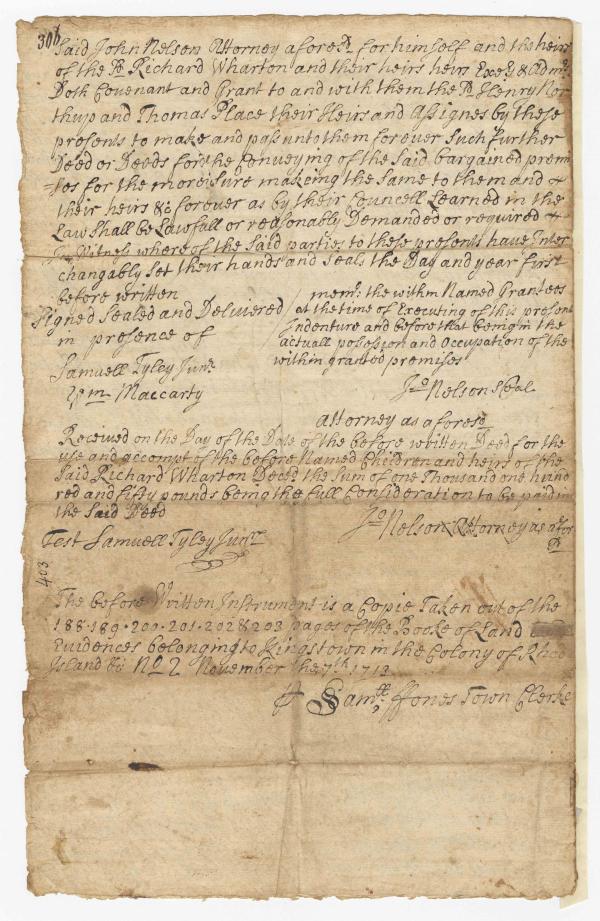 Said John Nelson Attorney aforesd. for himself and the heirs
of the sd. Richard Wharton and their heirs heirs Exers & Admrs.
Doth Covenant and Grant to and with them the sd. Henry Nor
thup and Thomas Place their Heirs and Assignes by these
presents to make and pass unto them for ever Such further
Deed or Deeds for the Conveying of the Said bargained premi
=ses for the more sure making the Same to them and
their heirs &c forever as by their Councell Learned in the
Law Shall be Lawfull or reasonably Demanded or required
In Witness where of the Said parties to these presents have Inter
changably Set their hands and Seals the Day and year first
before written
Signed Sealed and Deliviered
in presence of
Samuell Tyley Junr.
Wm Maccarty
mem: the within Named Grantees
at the time of Executing of this present
Indenture and before that being in the
actuall posession and Occupation of the
within granted premises
Jo Nelson Seal
attorney as aforesd
Received on the Day of the Date of the before written Deed for the
use and accompt of the before Named Children and heirs of the
Said Richard Wharton Decd the Sum of one Thousand one hund
red and fifty pounds being the full Consideration to be paid in
the Said Deed
Jo Nelson Attorney as afor
sd
Test Samuell Tyley Junr
403
The before Written Instrument is a Copie Taken out of the
188·189·200·201·202 & 203 pages of the Booke of Land
Evidences belonging to Kingstown in the Colony of Rhod
Island &c No 2 November the 7th 1713
Samll ffones Town Clerke